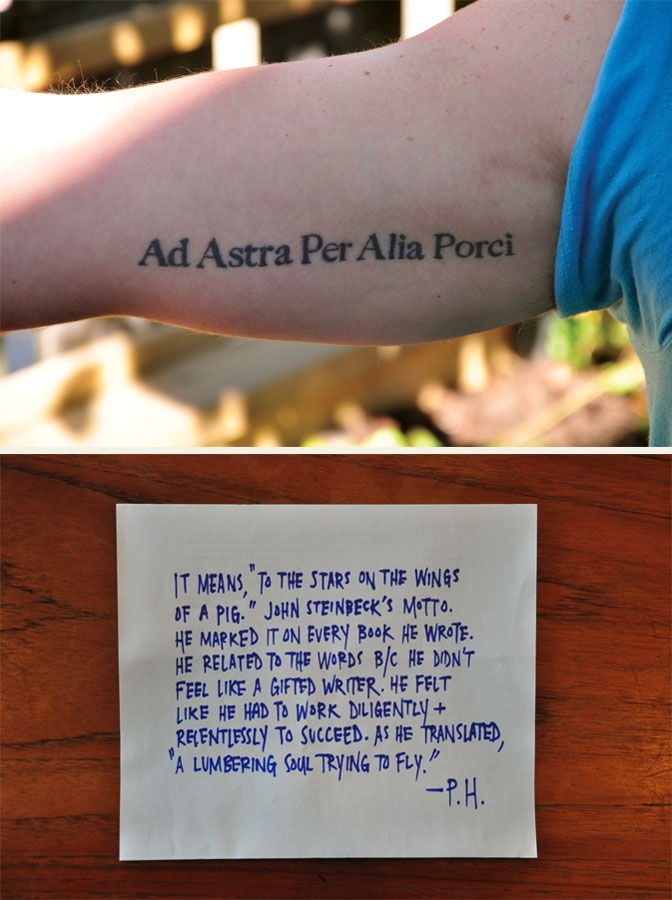 Ad Astra Per Alia Porci
IT MEANS, "TO THE STARS ON THE WINGS
OF A PIG." JOHN STEINBECK'S MOTTO.
HE MARKED IT ON EVERY BOOK HE WROTE.
HE RELATED TO THE WORDS B/C HE DIDN'T
FEEL LIKE A GIFTED WRITER. HE FELT
LIKE HE HAD TO WORK DILIGENTLY +
RELENTLESSLY TO SUCCEED. AS HE TRANSLATED,
"A LUMBERING SOUL TRYING TO FLY."
—P.H.